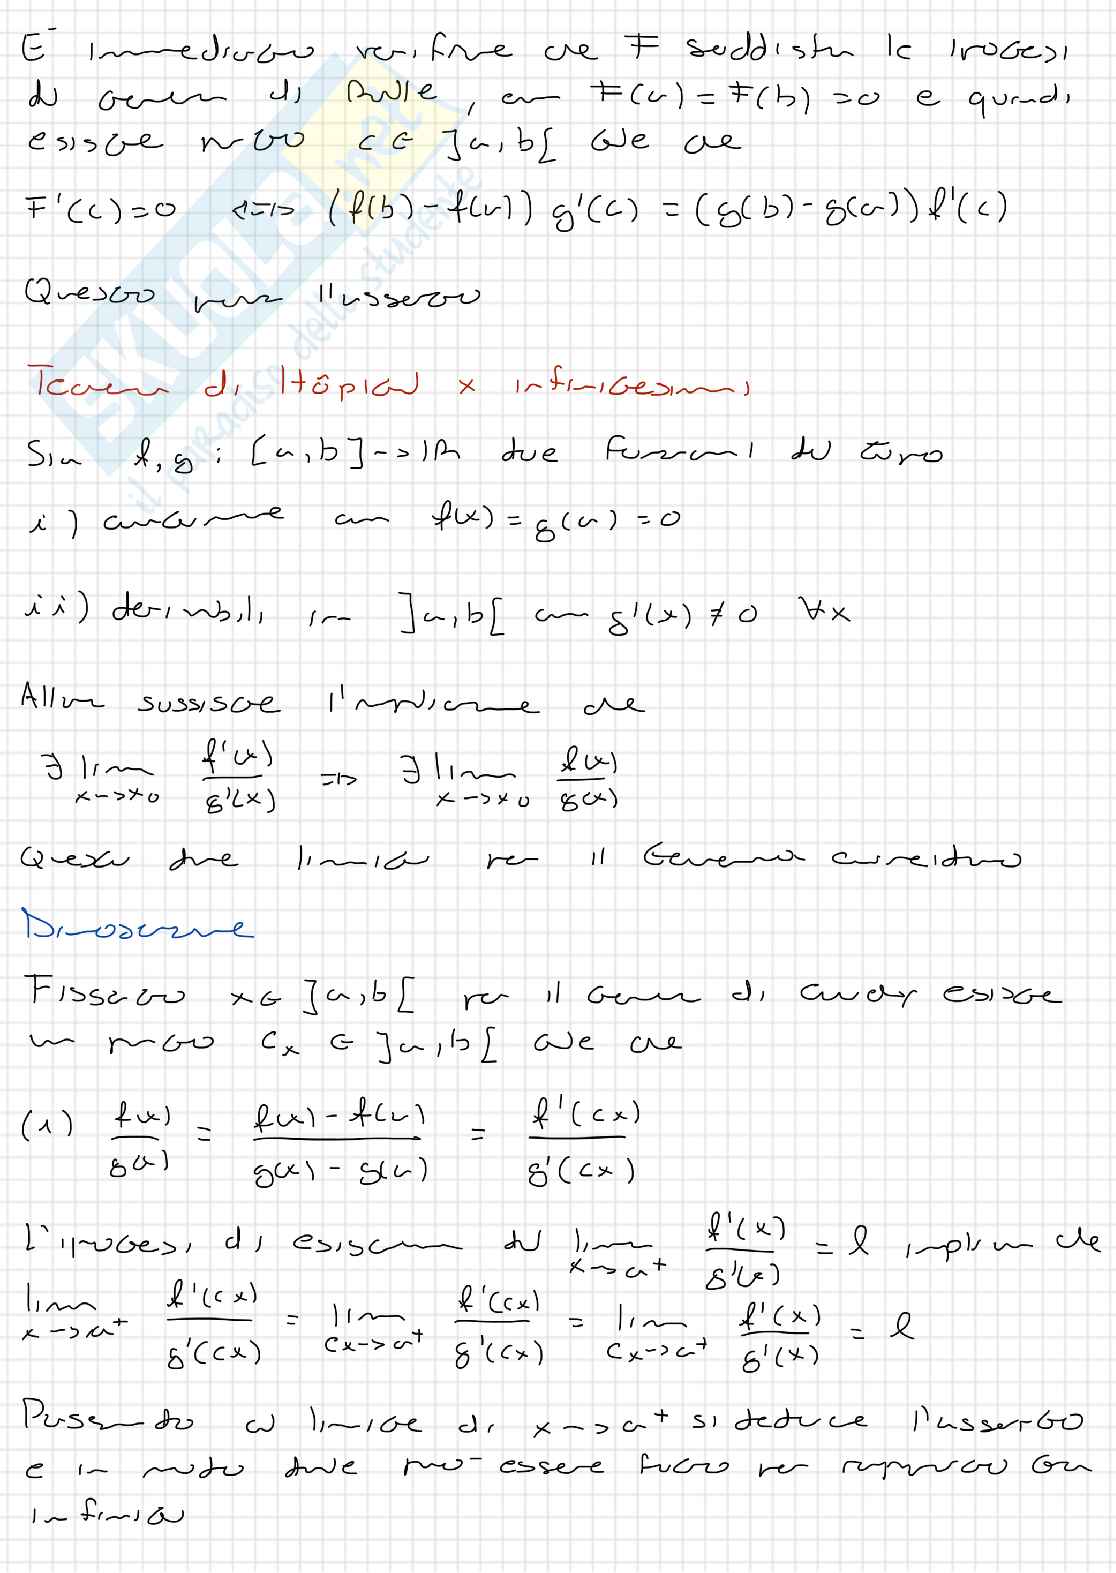 E' immediato verificare che F soddisfa le ipotesi
del teorema di Rolle, con F(a) = F(b) = 0 e quindi
esiste punto c ∈ ]a,b[ tale che
F'(c) = 0 <=> (f(b) - f(a)) g'(c) = (g(b) - g(a)) f'(c)
Questo prova l'asserto
Teorema di Hôpital x infinitesimi
Sia f, g : [a,b] -> IR due funzioni del tipo
i) continue con f(x) = g(a) = 0
ii) derivabili in ]a,b[ con g'(x) ≠ 0 ∀x
Allora sussiste l'implicazione che
∃ lim x->x0 f'(x)/g'(x) => ∃ lim x->x0 f(x)/g(x)
Questi due limiti per il teorema coincidono
Dimostrazione
Fissato x ∈ ]a,b[ per il teorema di Cauchy esiste
un punto cx ∈ ]a,b[ tale che
(1) f(x)/g(x) = f(x) - f(a)/g(x) - g(a) = f'(cx)/g'(cx)
L'ipotesi di esistenza del lim x->a+ f'(x)/g'(x) = l implica che
lim x->a+ f'(cx)/g'(cx) = lim cx->a+ f'(cx)/g'(cx) = lim cx->a+ f'(x)/g'(x) = l
Passando al limite di x->a+ si deduce l'asserto
e in modo tale può essere fatto per rapporto con
infiniti
SKUOLA.net
il paradiso dello studente